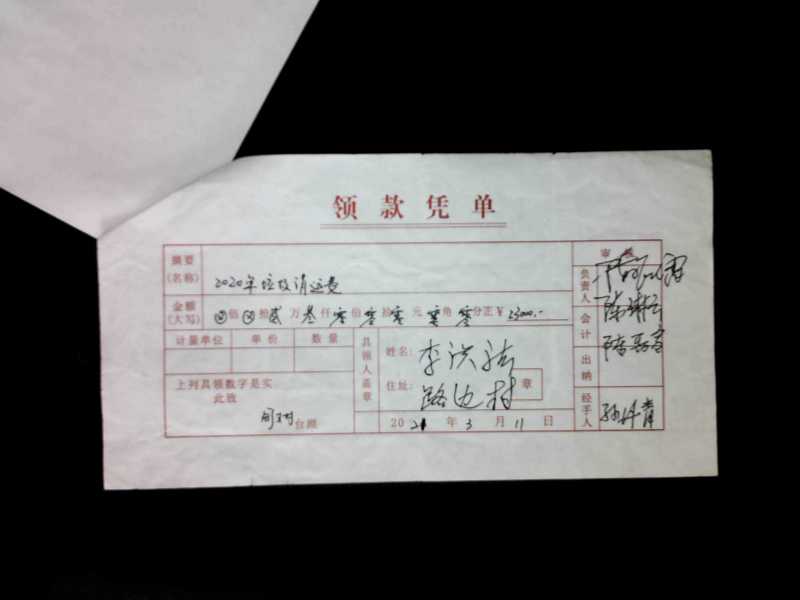 领款凭单
摘要
(名称)
2020年垃圾清运费
审核
金额
(大写)
⊗佰⊗拾贰万叁仟零佰零拾零元零角零分正¥23000.-
计量单位 单价 数量
上列具领数字是实
此致
台照
具领人盖章
姓名:李洪
住址:路边村
章
2021年3月11日
负责人
会计
出纳
经手人